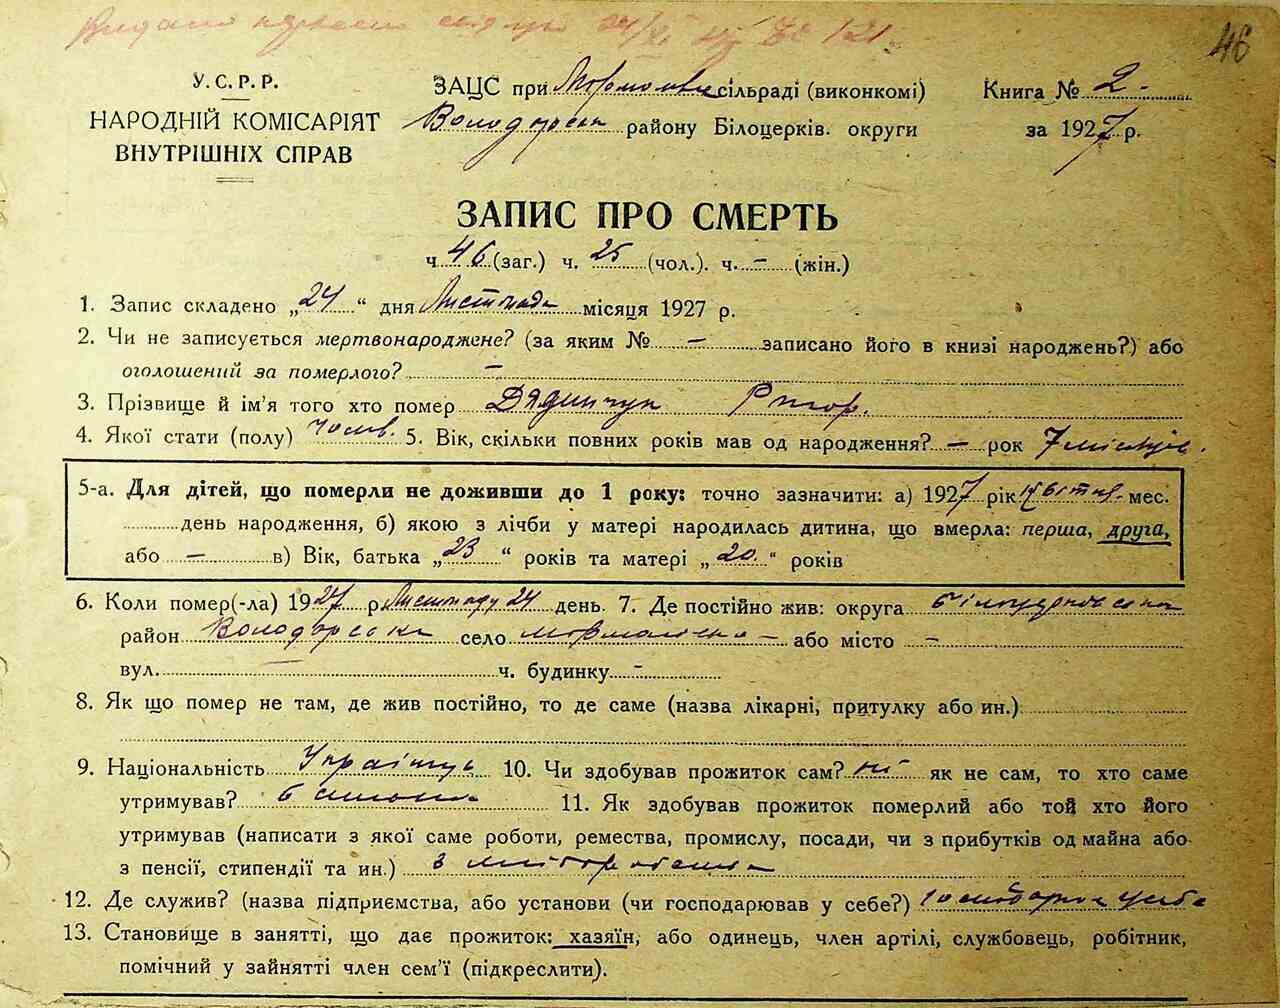 46
У.С.Р.Р.
НАРОДНІЙ КОМІСАРІЯТ
ВНУТРІШНІХ СПРАВ
ЗАЦС при сільраді (виконкомі)
Володарськ району Білоцерків. округи
Книга № 2.
за 1927 р.
ЗАПИС ПРО СМЕРТЬ
ч 46 (заг.) ч. 25 (чол.). ч. – (жін.)
1. Запис складено „24“ дня Листопада місяця 1927 р.
2. Чи не записується мертвонароджене? (за яким № – записано його в книзі народжень?) або
оголошений за померлого? –
3. Прізвище й ім'я того хто помер Дядинчук
4. Якої стати (полу) чолов. 5. Вік, скільки повних років мав од народження? – рок 7 місяців.
5-а. Для дітей, що померли не доживши до 1 року: точно зазначити: а) 1927 рік мес.
день народження, б) якою з лічби у матері народилась дитина, що вмерла: перша, друга,
або – в) Вік, батька „23“ років та матері „20“ років
6. Коли помер(-ла) 1927 р. Листопаду 24 день. 7. Де постійно жив: округа Білоцерківська
район Володарськ село – або місто –
вул. – ч. будинку –
8. Як що помер не там, де жив постійно, то де саме (назва лікарні, притулку або ин.)
9. Національність Українець 10. Чи здобував прожиток сам? ні як не сам, то хто саме
утримував? батько 11. Як здобував прожиток померлий або той хто його
утримував (написати з якої саме роботи, ремества, промислу, посади, чи з прибутків од майна або
з пенсії, стипендії та ин.) з хліборобства
12. Де служив? (назва підприємства, або установи (чи господарював у себе?) господарює у себе
13. Становище в занятті, що дає прожиток: хазяїн, або одинець, член артілі, службовець, робітник,
помічний у зайнятті член сем'ї (підкреслити).